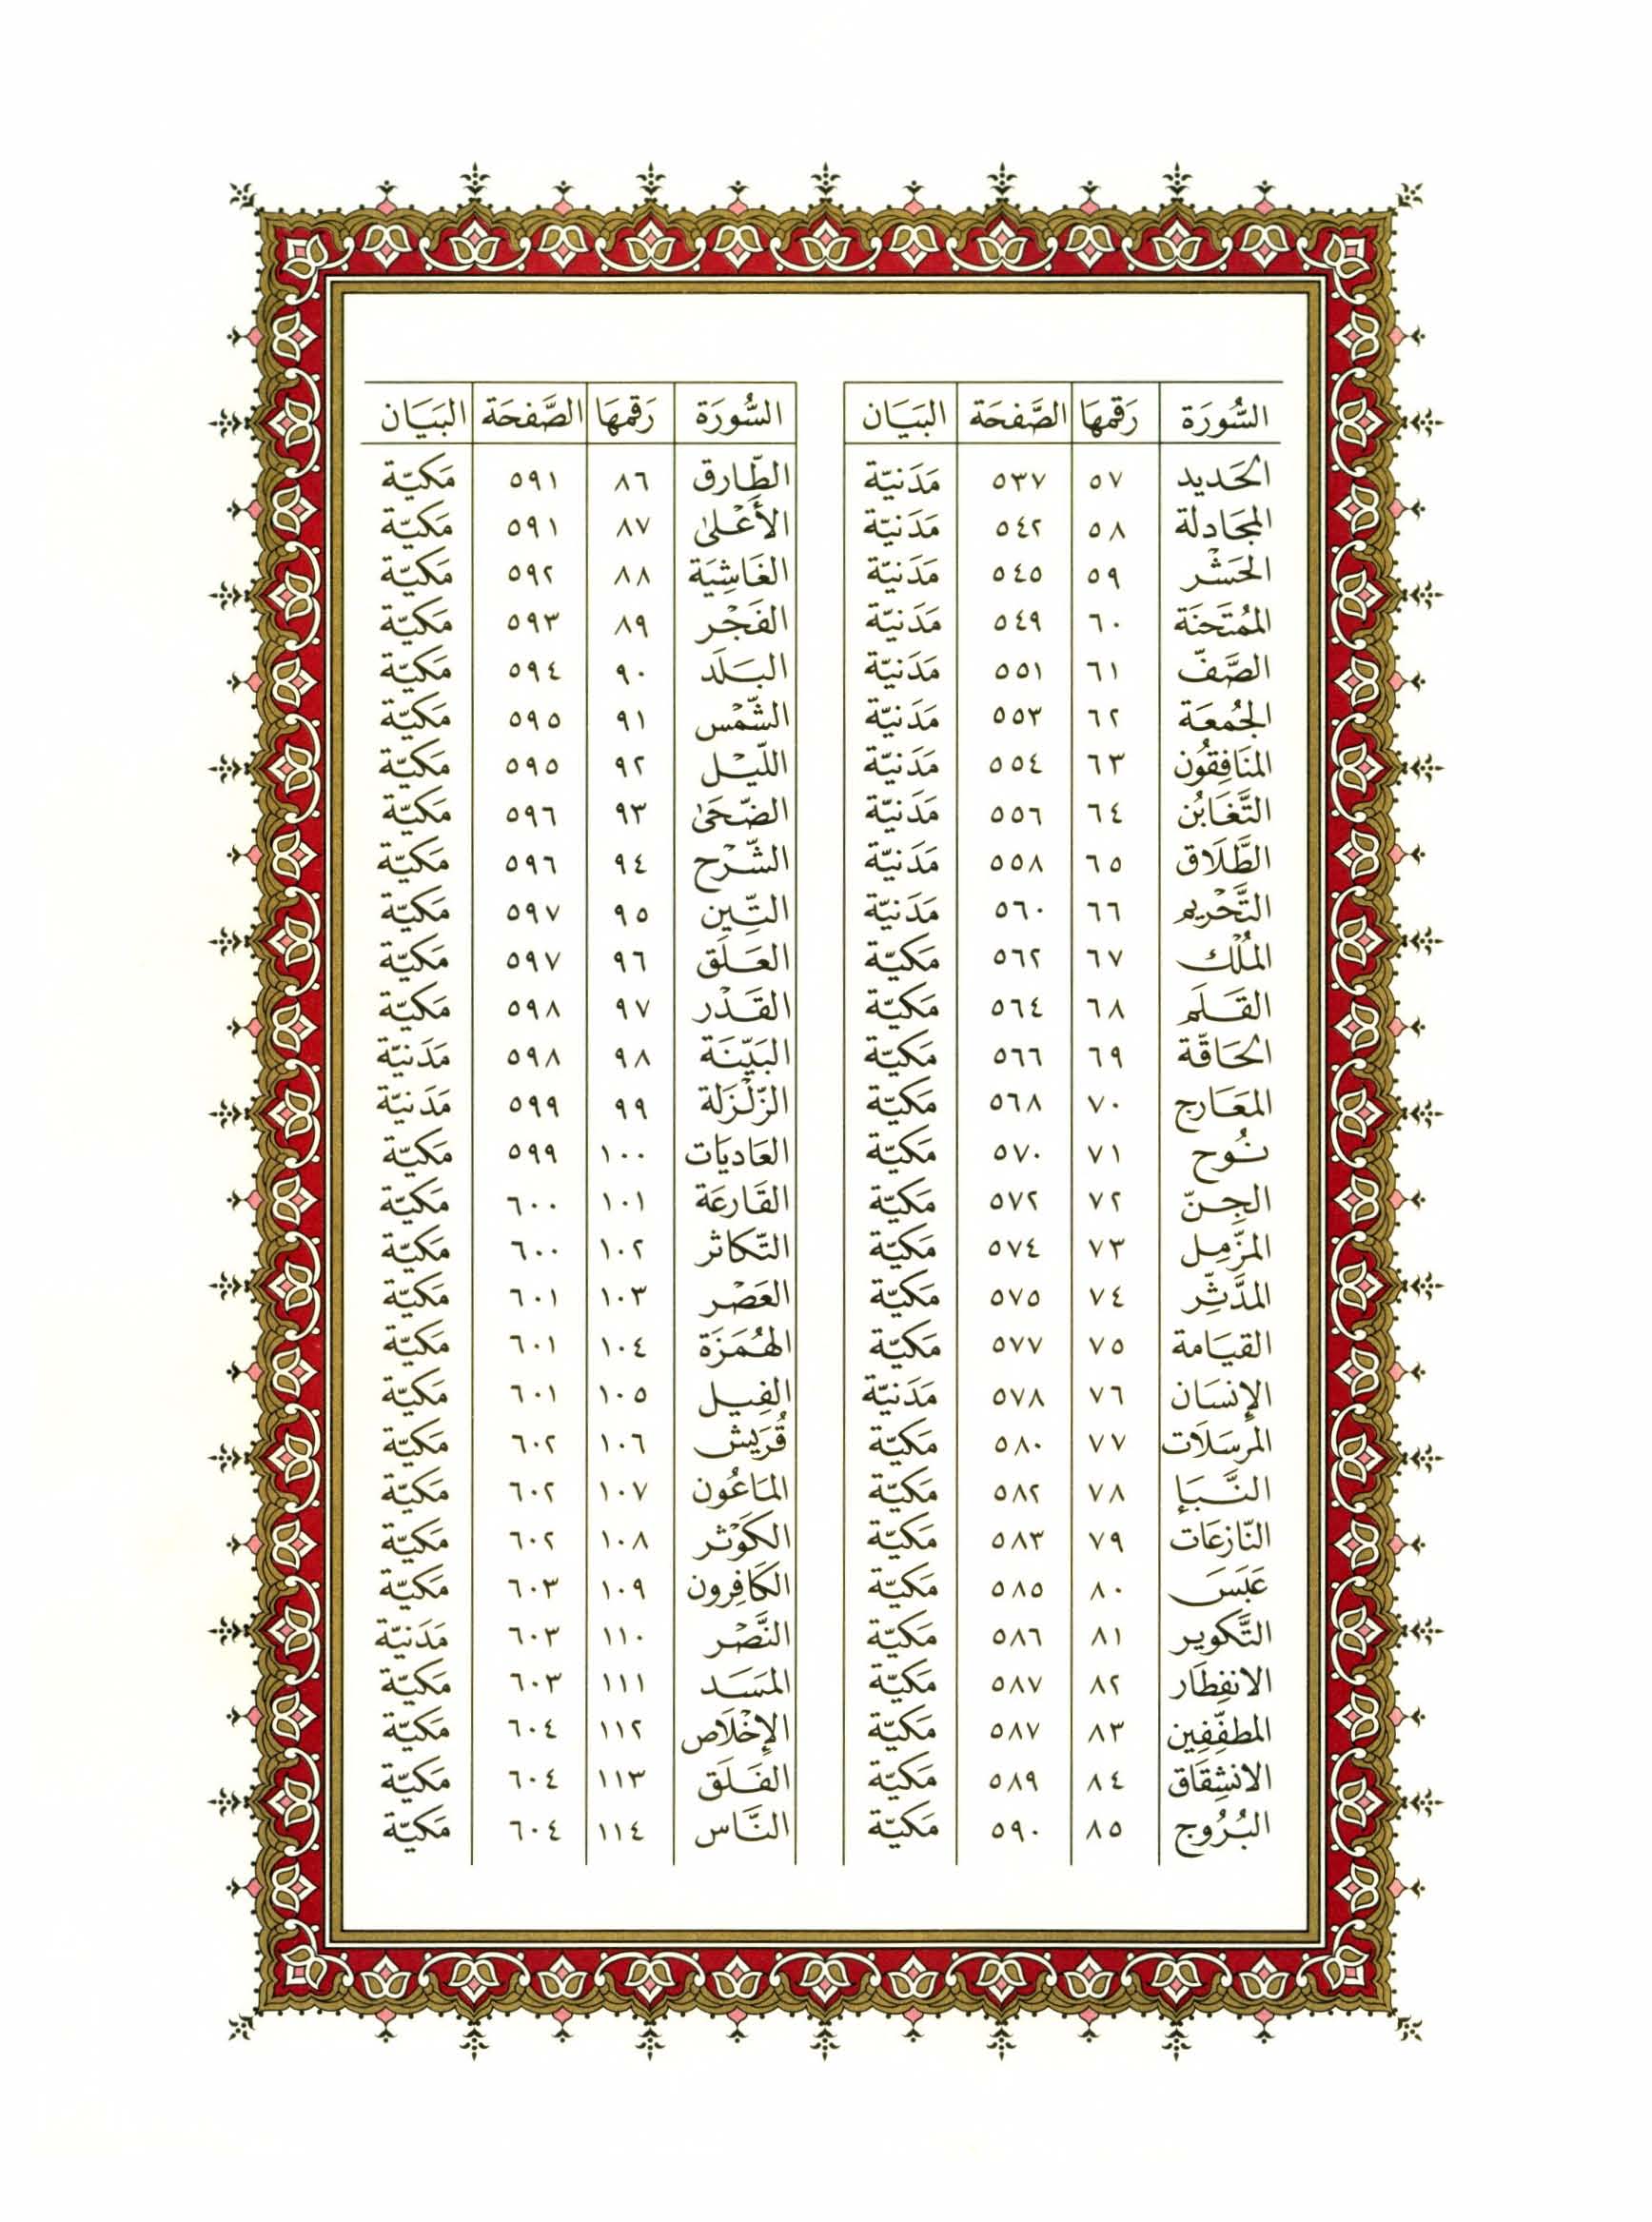 السُّورَة رَقمُهَا الصَّفحَة البَيَان
الحَديد ٥٧ ٥٣٧ مَدَنيّة
المجَادلة ٥٨ ٥٤٢ مَدَنيّة
الحَشْر ٥٩ ٥٤٥ مَدَنيّة
المُمتَحنَة ٦٠ ٥٤٩ مَدَنيّة
الصَّفّ ٦١ ٥٥١ مَدَنيّة
الجُمعَة ٦٢ ٥٥٣ مَدَنيّة
المنَافِقُون ٦٣ ٥٥٤ مَدَنيّة
التَّغَابُن ٦٤ ٥٥٦ مَدَنيّة
الطَّلَاق ٦٥ ٥٥٨ مَدَنيّة
التَّحْريم ٦٦ ٥٦٠ مَدَنيّة
المُلْك ٦٧ ٥٦٢ مَكيّة
القَلَم ٦٨ ٥٦٤ مَكيّة
الحَاقّة ٦٩ ٥٦٦ مَكيّة
المعَارج ٧٠ ٥٦٨ مَكيّة
نُوح ٧١ ٥٧٠ مَكيّة
الجِنّ ٧٢ ٥٧٢ مَكيّة
المزّمِل ٧٣ ٥٧٤ مَكيّة
المدَّثِّر ٧٤ ٥٧٥ مَكيّة
القيَامة ٧٥ ٥٧٧ مَكيّة
الإنسَان ٧٦ ٥٧٨ مَدَنيّة
المرسَلَات ٧٧ ٥٨٠ مَكيّة
النَّبَإ ٧٨ ٥٨٢ مَكيّة
النّازعَات ٧٩ ٥٨٣ مَكيّة
عَبَسَ ٨٠ ٥٨٥ مَكيّة
التَّكوير ٨١ ٥٨٦ مَكيّة
الانفِطَار ٨٢ ٥٨٧ مَكيّة
المطفّفِين ٨٣ ٥٨٧ مَكيّة
الانشِقَاق ٨٤ ٥٨٩ مَكيّة
البُرُوج ٨٥ ٥٩٠ مَكيّة
السُّورَة رَقمُهَا الصَّفحَة البَيَان
الطّارق ٨٦ ٥٩١ مَكيّة
الأَعْلىٰ ٨٧ ٥٩١ مَكيّة
الغَاشِيَة ٨٨ ٥٩٢ مَكيّة
الفَجْر ٨٩ ٥٩٣ مَكيّة
البَلَد ٩٠ ٥٩٤ مَكيّة
الشّمْس ٩١ ٥٩٥ مَكيّة
اللّيْل ٩٢ ٥٩٥ مَكيّة
الضّحَىٰ ٩٣ ٥٩٦ مَكيّة
الشّرْح ٩٤ ٥٩٦ مَكيّة
التِّين ٩٥ ٥٩٧ مَكيّة
العَلَق ٩٦ ٥٩٧ مَكيّة
القَدْر ٩٧ ٥٩٨ مَكيّة
البَيِّنَة ٩٨ ٥٩٨ مَدَنيّة
الزّلْزَلة ٩٩ ٥٩٩ مَدَنيّة
العَاديَات ١٠٠ ٥٩٩ مَكيّة
القَارعَة ١٠١ ٦٠٠ مَكيّة
التّكاثر ١٠٢ ٦٠٠ مَكيّة
العَصْر ١٠٣ ٦٠١ مَكيّة
الهُمَزَة ١٠٤ ٦٠١ مَكيّة
الفِيل ١٠٥ ٦٠١ مَكيّة
قُرَيش ١٠٦ ٦٠٢ مَكيّة
المَاعُون ١٠٧ ٦٠٢ مَكيّة
الكَوْثر ١٠٨ ٦٠٢ مَكيّة
الكَافِرون ١٠٩ ٦٠٣ مَكيّة
النَّصْر ١١٠ ٦٠٣ مَدَنيّة
المَسَد ١١١ ٦٠٣ مَكيّة
الإخْلَاص ١١٢ ٦٠٤ مَكيّة
الفَلَق ١١٣ ٦٠٤ مَكيّة
النَّاس ١١٤ ٦٠٤ مَكيّة